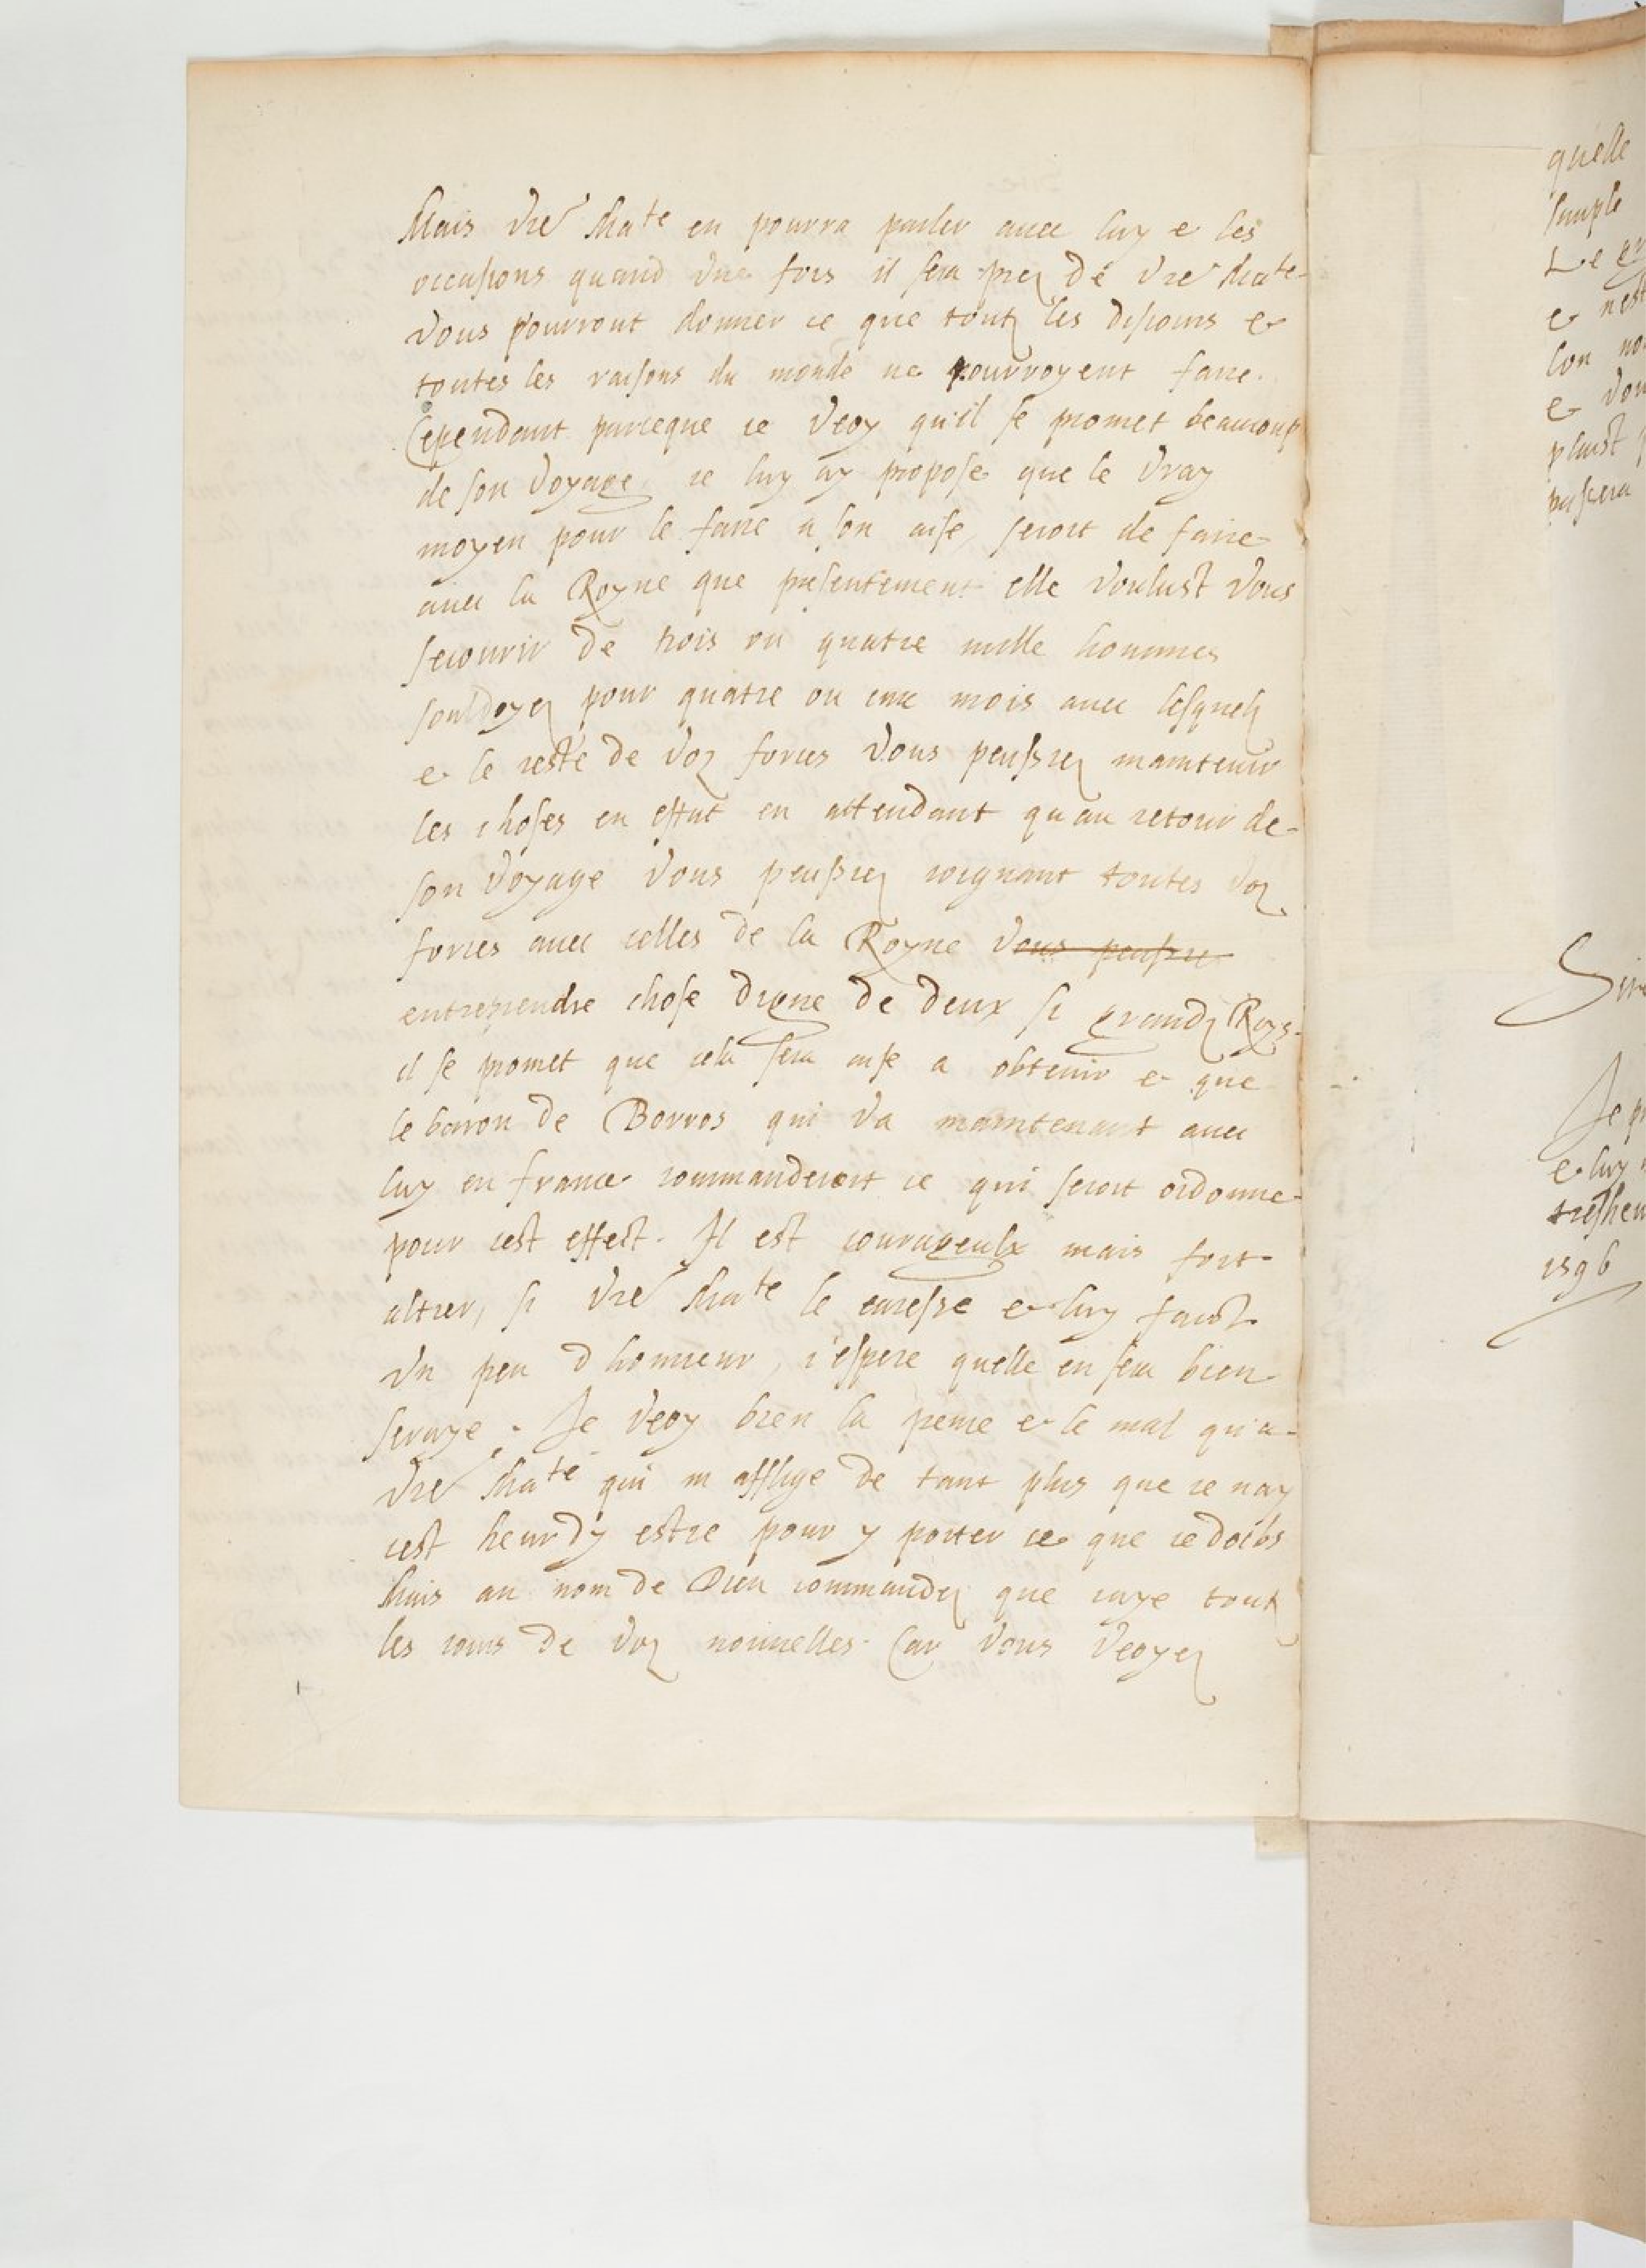 Mais vre Mate en pourra parler avec luy e les
occasions quand vne fois il sera prez de vre Mate
vous pourront donner ce que toutz les discours e
toutes les raisons du monde ne pourroyent faire.
Cependant parceque ie veoy qu'il se promet beaucoup
de son voyage ie luy ay propose que le vray
moyen pour le faire a son aise, seroit de faire
auec la Royne que presentement elle voulust vous
secourir de trois ou quatre mille hommes
souldoyez pour quatre ou cinc mois auec lesquelz
e le reste de voz forces vous peussiez maintenir
les choses en estat en attendant qu'au retour de
son voyage vous peussiez ioignant toutes voz
forces auec celles de la Royne vous peussiez
entreprendre chose digne de deux si grandz Roys.
il se promet que cela sera aise a obtenir e que
le baron de Borros qui va maintenant auec
luy en france commanderoit ce qui seroit ordonne
pour cest effect. Il est courageulx mais fort
altier, si vre Mate le caresse e luy faict
vn peu d honneur, i'espere quelle en sera bien
seruye. Je veoy bien la peine e le mal qu'a
vre Mate qui m afflige de tant plus que ie nay
cest heur d'y estre pour y porter ce que ie doibs
Mais au nom de Dieu commandez que iaye toutz
les iours de voz nouuelles. Car vous veoyez
quelle
simple
Le
e nest
lon
e
plaist
passera
Sire
Je
e luy
tresheu
1596